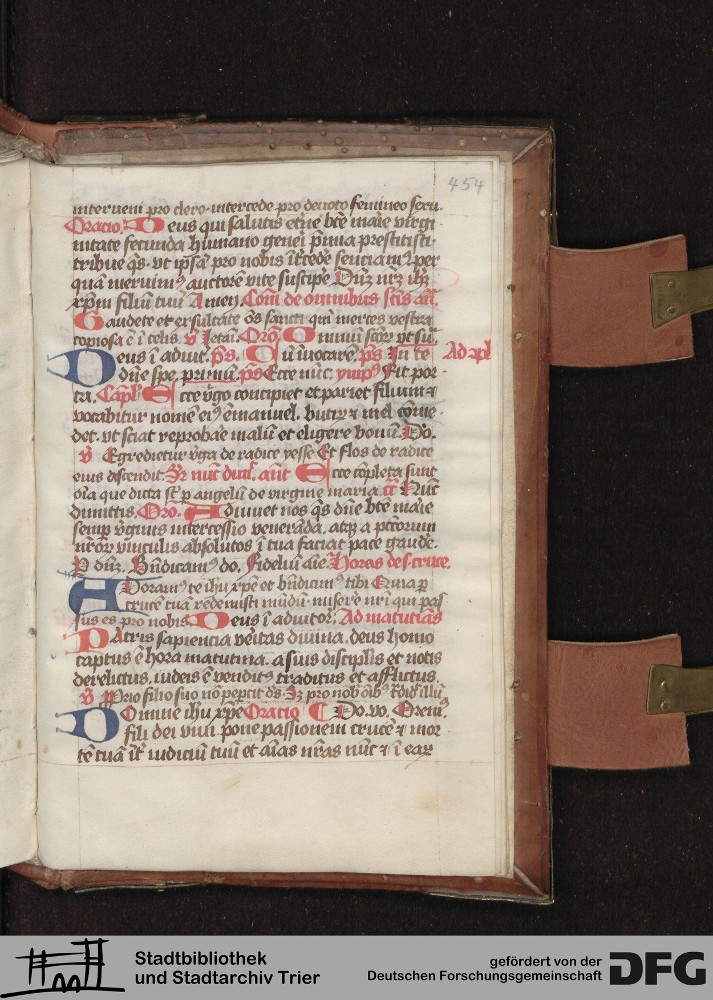 454
interueni pro clero intercede pro deuoto femineo sexu.
Oracio. Deus qui salutis et̄ne bt̄e marie virgi
nitate fecunda humano generi p̄mia prestitisti
tribue q̄s vt ip̄sā pro nobis īt̄cede senciam9 per
quā meruim9 auctorē vite suscipe Dn̄z nrz ihz
xp̄m filiū tuū Amen. Com̄ de omnibus scīs an̄.
Gaudete et exsultate o̅s sancti qui merces vestra
copiosa ē ī celis. v Letan̄. Oro. Omniū scōrꝝ
Deus ī adiut. p̄s. Cū īuocarē. p̄s In te
Ad ɔpl
dn̄e spe. primū. ps Ecce nūc. ymp9 Fit por
ta. Capl̄ Ecce v̄go concipiet et pariet filium ⁊
vocabitur nomē ei9 emanuel. butirꝝ ⁊ mel come
det. vt sciat reprobare malū et eligere bonū. Do.
v Egredietur v̄ga de radice yesse Et flos de radice
eius ascendit. nūc dimit. ant̄ Ecce cōpleta sunt
oīa que dicta st̄ p angelū de virgine maria. Nūc
dimittis. Oro. Adiuuet nos q̄s dn̄e bt̄e marie
semp v̄ginis intercessio veneranda. atqꝫ a pctōrum
nr̄orꝝ vinculis absolutos ī tua faciat pace gaude.
P dn̄z. Bn̄dicam9 do. Fideliū aīe. Horas de s. cruce.
Adoram9 te ihu xp̄e et bn̄dicim9 tibi Quia p
crucē tuā redemisti mūdū. miserē nrī qui pas
sus es pro nobis. Deus ī adiutor. Ad matutinas
Patris sapiencia veritas diuina. deus homo
captus ē hora matutina. a suis disciplīs et notis
derelictus. iudeis ē venditꝰ traditus et afflictus.
v Prop̄o filio suo nō pepercit ds. Sz pro nob̄ oīb9 t̄didit illū
Domine ihu xp̄e Oracio Do. vo. Orem9
fili dei viui. pone passionem crucē ⁊ mor
tē tuā īt̄ iudiciū tuū et aīas nr̄as nūc ⁊ ī
Stadtbibliothek
und Stadtarchiv Trier
gefördert von der
Deutschen Forschungsgemeinschaft
DFG